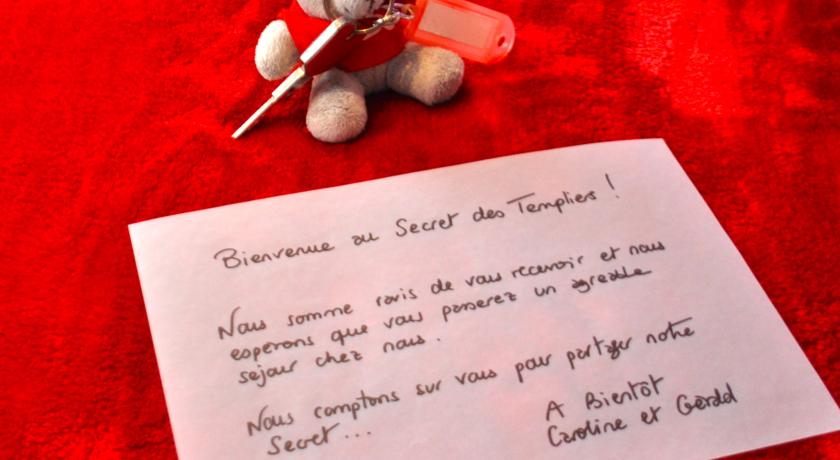 Bienvenue au Secret des Templiers !
Nous somme ravis de vous recevoir et nous
esperons que vous passerez un agreable
sejour chez nous.
Nous comptons sur vous pour partager notre
Secret ...
A Bientôt
Caroline et Gérald